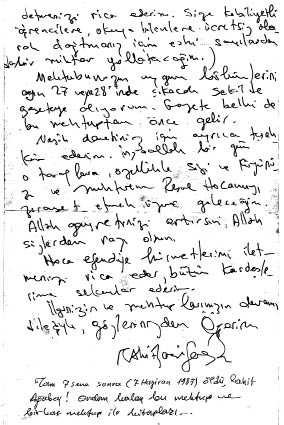 etmenizi rica ederim. Size kabiliyetli
öğrencilere, okuya bilenlere ücretsiz ola
rak dağıtmanız için eski sayılardan
bir miktar yollatacağım.)
Mektubunuzun uygun bölümlerini
ayın 27 veya 28'inde çıkacak şekilde
gazeteye alıyorum. Gazete belki de
bu mektuptan önce gelir.
Nazik davetiniz için ayrıca teşek
kür ederim. İnşaallah bir gün
o taraflara, özellikle sizi ve
ve muhterem Hocamızı,
ziyaret etmek üzere geleceğim.
Allah gayretinizi artırsın, Allah
sizlerden razı olsun.
Hoca efendiye hürmetlerimi ilet
menizi rica eder, bütün kardeşle
rime selamlar ederim.
İlginizin ve mektuplarınızın devamı
dileğiyle, gözlerinizden öperim
Tam 7 sene sonra (7 Haziran 1987) öldü, Cahit
Ağabey! Ondan kalan bu mektup ve
birkaç mektup ile kitapları...